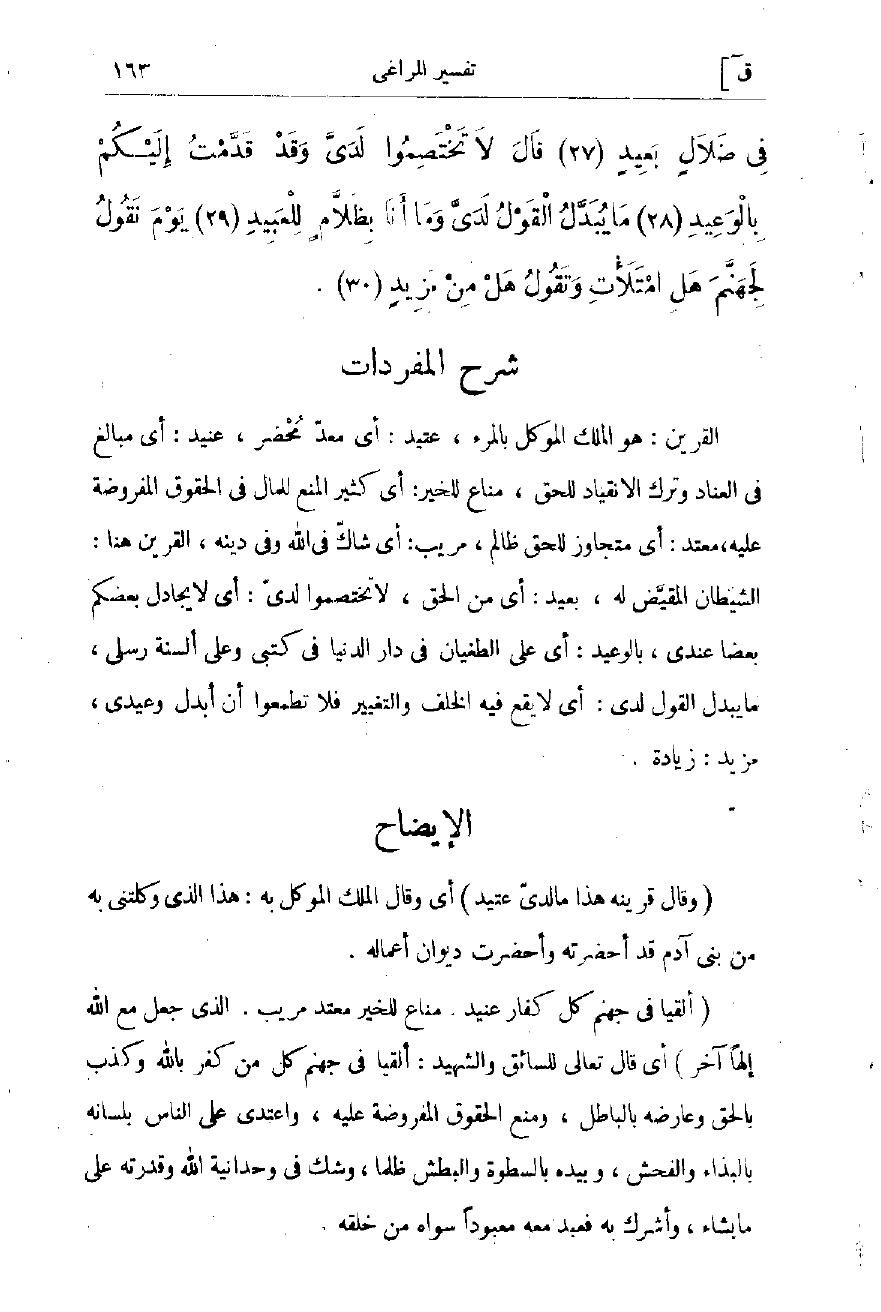 ق] تفسير المراغى ١٦٣
فِى ضَلَالٍ بَعِيدٍ (٢٧) قَالَ لَا تَخْتَصِمُوا لَدَىَّ وَقَدْ قَدَّمْتُ إِلَيْكُمْ
بِالْوَعِيدِ (٢٨) مَا يُبَدَّلُ الْقَوْلُ لَدَىَّ وَمَا أَنَا بِظَلَّامٍ لِلْعَبِيدِ (٢٩) يَوْمَ نَقُولُ
لِجَهَنَّمَ هَلِ امْتَلَأْتِ وَتَقُولُ هَلْ مِنْ مَزِيدٍ (٣٠) .
شرح المفردات
القرين : هو الملك الموكل بالمرء ، عتيد : أى معدّ مُحْضر ، عنيد : أى مبالغ
فى العناد وترك الانقياد للحق ، مناع للخير: أى كثير المنع للمال فى الحقوق المفروضة
عليه، معتد : أى متجاوز للحق ظالم ، مريب: أى شاكّ فى الله وفى دينه ، القرين هنا :
الشيطان المقيَّض له ، بعيد : أى من الحق ، لا تختصموا لدىّ : أى لا يجادل بعضكم
بعضا عندى ، بالوعيد : أى على الطغيان فى دار الدنيا فى كتبى وعلى ألسنة رسلى ،
ما يبدل القول لدى : أى لا يقع فيه الخلف والتغيير فلا تطمعوا أن أبدل وعيدى ،
مزيد : زيادة .
الإيضاح
( وقال قرينه هذا ما لدىّ عتيد ) أى وقال الملك الموكل به : هذا الذى وكلتنى به
من بنى آدم قد أحضرته وأحضرت ديوان أعماله .
( ألقيا فى جهنم كل كفار عنيد . مناع للخير معتد مريب . الذى جعل مع الله
إلهاً آخر ) أى قال تعالى للسائق والشهيد : ألقيا فى جهنم كل من كفر بالله وكذب
بالحق وعارضه بالباطل ، ومنع الحقوق المفروضة عليه ، واعتدى على الناس بلسانه
بالبذاء والفحش ، وبيده بالسطوة والبطش ظلما ، وشك فى وحدانية الله وقدرته على
ما يشاء ، وأشرك به فعبد معه معبوداً سواه من خلقه .